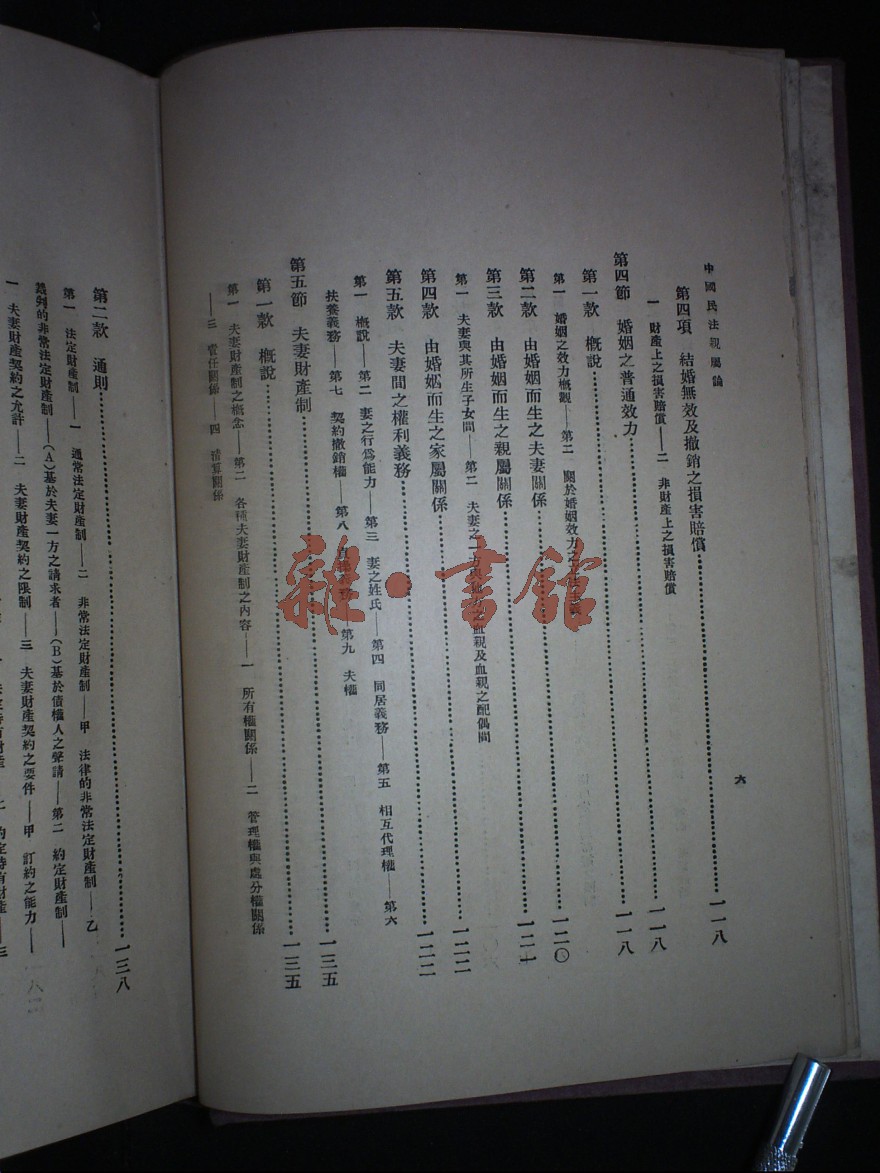 中國民法親屬論
六
第四項 結婚無效及撤銷之損害賠償……一一八
一 財產上之損害賠償——二 非財產上之損害賠償
第四節 婚姻之普通效力……一一八
第一款 概說……一一八
第一 婚姻之效力概觀——第二 關於婚姻效力之
第二款 由婚姻而生之夫妻關係……一二〇
第三款 由婚姻而生之親屬關係……一二一
第一 夫妻與其所生子女間——第二 夫妻之一方與他方之血親及血親之配偶間
第四款 由婚姻而生之家屬關係……一二二
第五款 夫妻間之權利義務……一二二
第一 概說——第二 妻之行爲能力——第三 妻之姓氏——第四 同居義務——第五 相互代理權——第六
扶養義務——第七 契約撤銷權——第八 義務——第九 夫權
第五節 夫妻財產制……一三五
第一款 概說……一三五
第一 夫妻財產制之概念——第二 各種夫妻財產制之內容——一 所有權關係——二 管理權與處分權關係
——三 責任關係——四 清算關係
第二款 通則……一三八
第一 法定財產制——一 通常法定財產制——二 非常法定財產制——甲 法律的非常法定財產制——乙
裁判的非常法定財產制——(A)基於夫妻一方之請求者——(B)基於債權人之聲請——第二 約定財產制——
一 夫妻財產契約之允許——二 夫妻財產契約之限制——三 夫妻財產契約之要件——甲 訂約之能力——
雜·書館